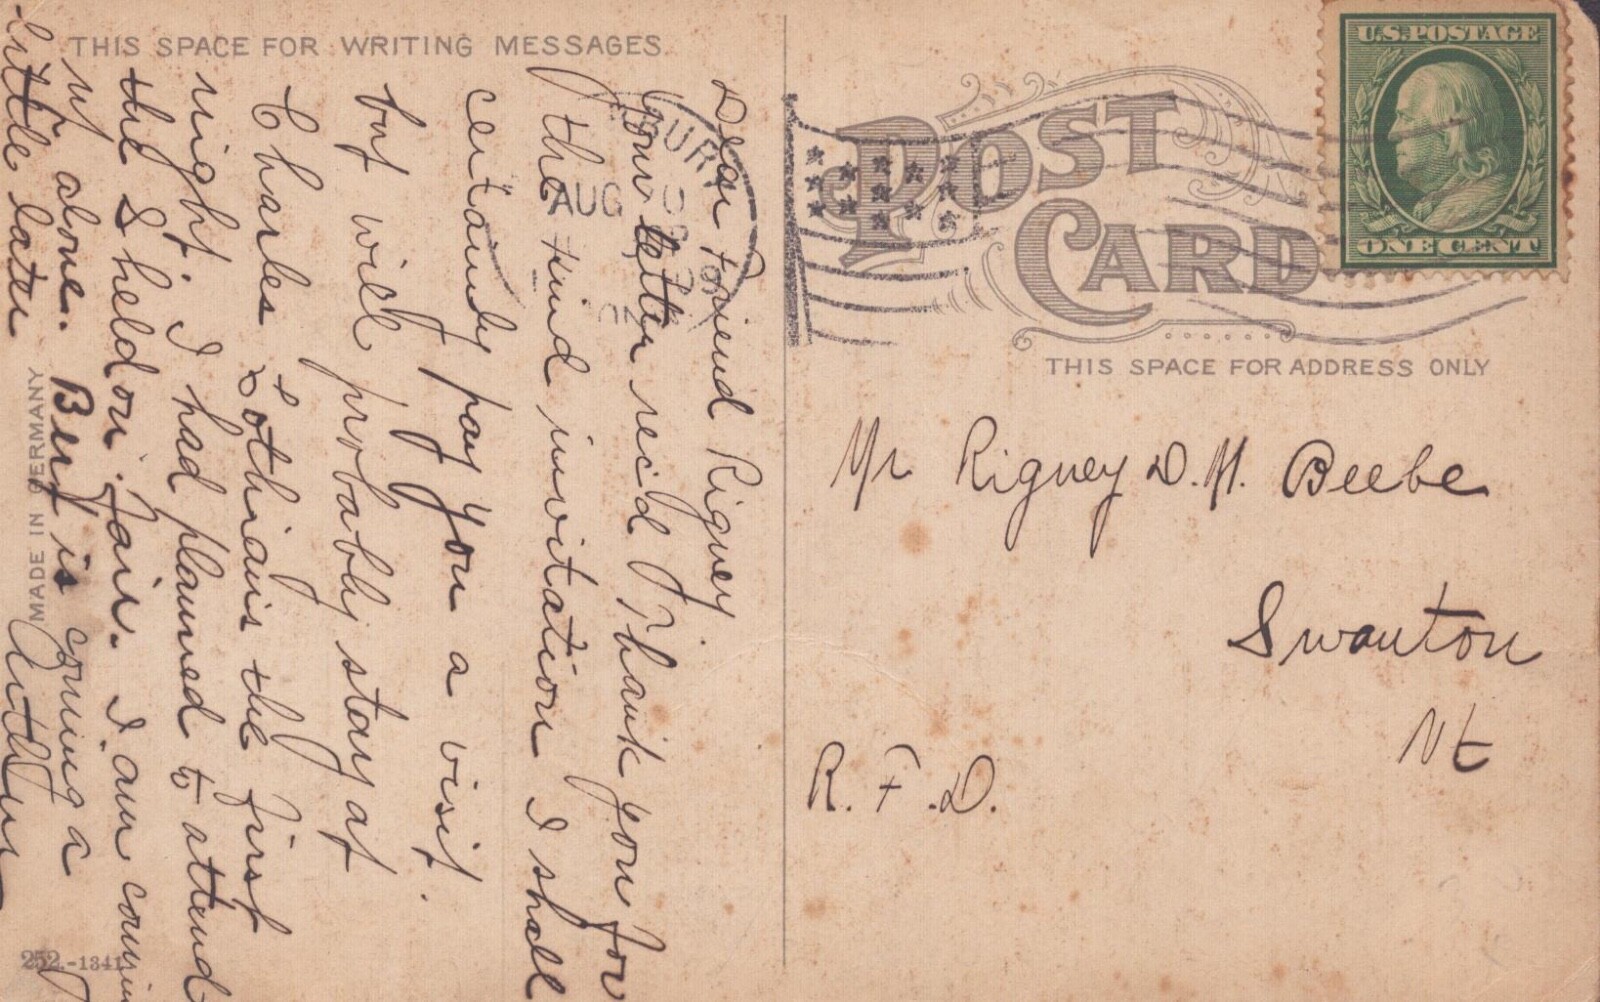 THIS SPACE FOR WRITING MESSAGES.
Dear Friend Rigney
Your letter rec'd Thank you for
the kind invitation I shall
certainly pay you a visit.
but will probably stay at
Charles Lothians the first
night. I had planned to attend
the Sheldon Fair. I am coming
up alone. Bert is coming a
little later
Arthur
MADE IN GERMANY
252.-1341
AUG
POST CARD
U.S. POSTAGE
ONE CENT
THIS SPACE FOR ADDRESS ONLY
Mr Rigney D. H. Beebe
Swanton
Vt
R. F. D.